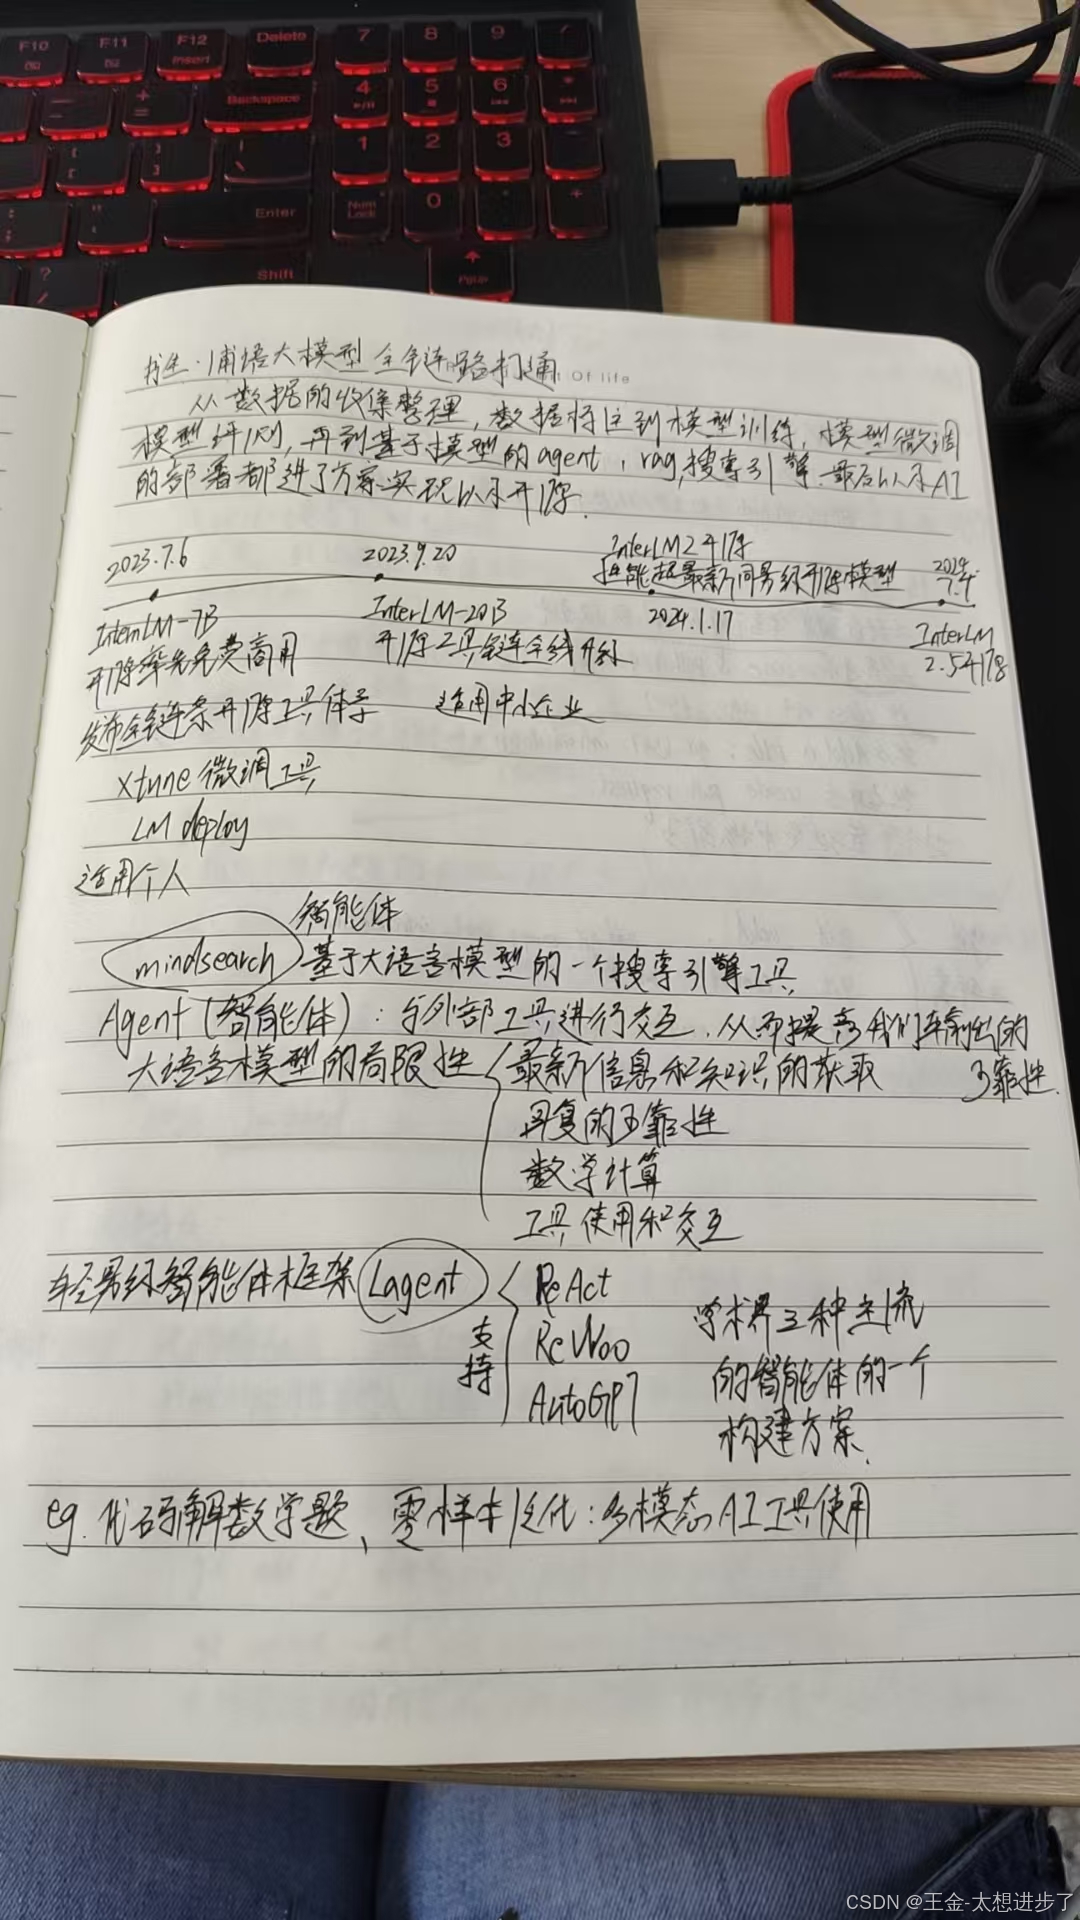 F10 F11 F12 Delete 7 8 9 /
Insert
Backspace 4 5 6 *
1 2 3
Enter Num Lock 0 . +
Shift PgUp
Of life
书生·浦语大模型 全链路打通
从数据的收集整理,数据标注到模型训练,模型微调
模型评测,再到基于模型的agent,rag,搜索引擎.最后以及AI
的部署都进了方案实现以及开源.
2023.7.6 2023.9.20 InterLM2开源 2024.7.4
性能超最新同易级开源模型
InternLM-7B InterLM-20B 2024.1.17 InterLM
开源率先免费商用 开源工具链全线升级 2.5开源
发布全链条开源工具体系 适用中小企业
xtune微调工具
LM deploy
适用个人
智能体
mindsearch 基于大语言模型的一个搜索引擎工具
Agent(智能体):与外部工具进行交互.从而提高我们输出的
大语言模型的局限性 最新信息和知识的获取 可靠性.
回复的可靠性
数学计算
工具使用和交互
轻易级智能体框架 Lagent 支持 ReAct
ReWoo
AutoGPT
学术界三种主流
的智能体的一个
构建方案.
eg.代码解数学题、零样本泛化:多模态AI工具使用
CSDN @王金-太想进步了